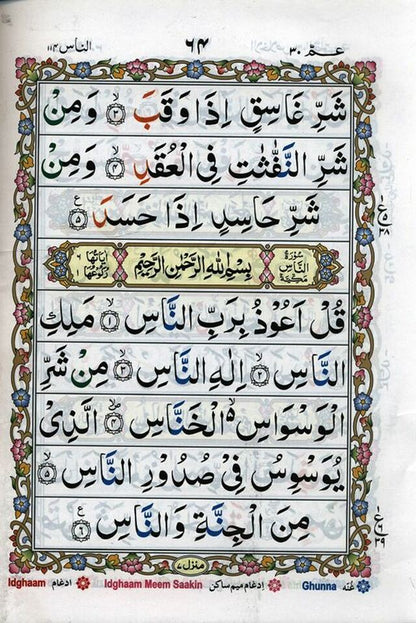 عـمّ ٣٠ ٦٤ الناس ١١٤
شَرِّ غَاسِقٍ اِذَا وَقَبَ ۙ﴿۳﴾ وَمِنْ
شَرِّ النَّفّٰثٰتِ فِی الْعُقَدِ ۙ﴿۴﴾ وَمِنْ
شَرِّ حَاسِدٍ اِذَا حَسَدَ ﴿۵﴾ ع
سُوْرَةُ النَّاسِ مَكِّيَّةٌ بِسْمِ اللهِ الرَّحْمٰنِ الرَّحِيْمِ اٰيَاتُهَا ٦ رُكُوْعُهَا ١
قُلْ اَعُوْذُ بِرَبِّ النَّاسِ ۙ﴿۱﴾ مَلِكِ
النَّاسِ ۙ﴿۲﴾ اِلٰهِ النَّاسِ ۙ﴿۳﴾ مِنْ شَرِّ
الْوَسْوَاسِ ۙ۬ الْخَنَّاسِ ۪ۙ﴿۴﴾ الَّذِیْ
یُوَسْوِسُ فِیْ صُدُوْرِ النَّاسِ ۙ﴿۵﴾
مِنَ الْجِنَّةِ وَالنَّاسِ ﴿۶﴾ ع
منزل ٧
ع ١ ٥ ٣٨
ع ١ ٦ ٣٩
Idghaam ادغام Idghaam Meem Saakin ادغام میم ساکن Ghunna غُنّه